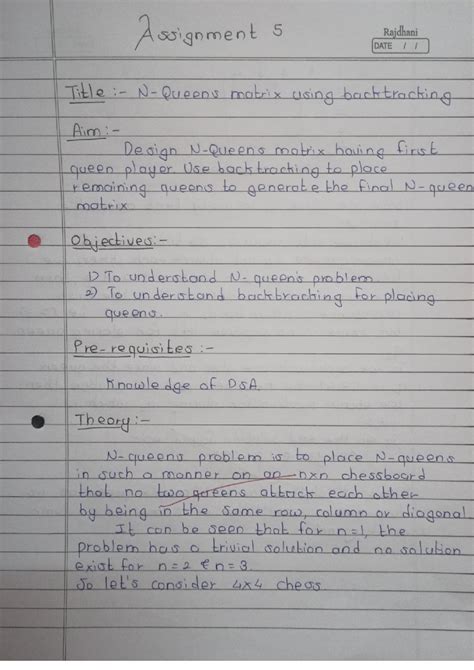 Assignment 5
Rajdhani
DATE / /
Title :- N-Queens matrix using backtracking
Aim :-
Design N-Queens matrix having first
queen player. Use backtracking to place
remaining queens to generate the final N-queen
matrix
Objectives :-
1) To understand N-queen's problem
2) To understand backtracking for placing
queens.
Pre-requisites :-
Knowledge of DSA.
Theory :-
N-queens problem is to place N-queens
in such a manner on an nxn chessboard
that no two queens attack each other
by being in the same row, column or diagonal
It can be seen that for n=1, the
problem has a trivial solution and no solution
exist for n=2 & n=3.
So let's consider 4x4 chess